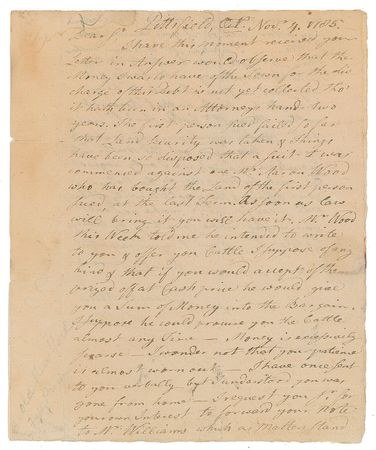 Dear Sr Pittsfield, Oct. Nov. 4. 1785.
I have this moment received your
Letter in Answer would observe that the
Money I was to have of the Town for the dis
charge of this Debt is not yet collected tho'
it hath been in an Attorneys hand two
years. The first person sued failed so far
that Land Security was taken & things
have been so disposed that a suit was
commenced against one Mr. Aaron Wood
who has bought the Land of the first person
sued, at the last Term. As soon as Law
will bring it you will have it. Mr. Wood
this Week told me he intended to write
to you & offer you Cattle I suppose of any
kind & that if you would accept of them
at Cash price he would give
you a Sum of Money into the Bargain.
I suppose he could procure you the Cattle
almost any Time — Money is excessively
scarse — I wonder not that your patience
is almost worn out — I have once sent
to you verbally but understood you was
gone from home — I request you Sr, for
your own Interest to forward your Note
to Mr. Williams which as Matters stand